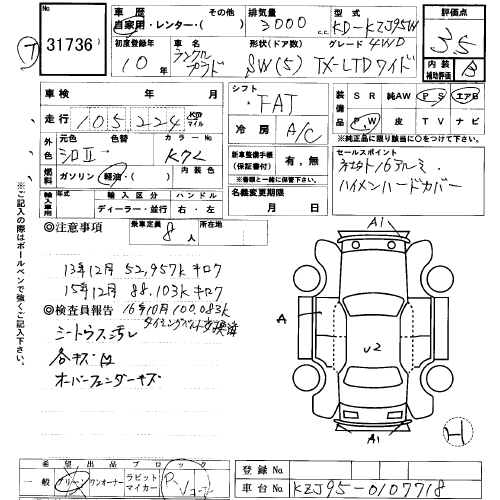 No. 31736
車歴 その他 自家用・レンター・( )
排気量 3000 c.c.
型式 KD-KZJ95W
評価点 3.5
初度登録年 10年
車名 ランクルプラド
形状(ドア数) SW(5)
グレード 4WD
TX-LTDワイド
内装補助評価 B
車検 年 月
走行 105,224 km マイル
シフト FAT
冷房 A/C
装備品 SR 純AW PS エアB
PW 皮 TV ナビ
※純正品に限り該当に○をつけて下さい
外色 元色 シロII 色替 カラーNo. K72
燃料 ガソリン 軽油・( ) 内装色
新車整備手帳(保証書付) 有.無
※書類と一緒に保管下さい
セールスポイント
ネオタト16アルミ
ハイメンハードカバー
輸入車用 年式 輸入区分 ハンドル
ディーラー・並行 右・左
名義変更期限 月 日
※ご記入の際はボールペンで強くご記入下さい。
◎注意事項
乗車定員 8人
所在地
13年12月 52,957k キロク
15年12月 88,103k キロク
◎検査員報告 16年10月 100,083k
タイミングベルト交換済
シートウス汚レ
各キズ凹
オーバーフェンダーキズ
A1
A
U2
A1
希望出品ブロック
一般 グリーン ワンオーナー ラビットマイカー
登録No.
車台No. KZJ95-0107718